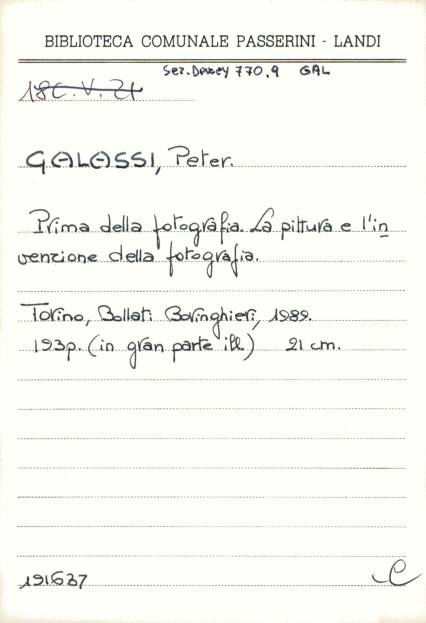 BIBLIOTECA COMUNALE PASSERINI - LANDI
Sez. Dewey 770.9 GAL
18C.V.21
GALASSI, Peter.
Prima della fotografia. La pittura e l'in
venzione della fotografia.
Torino, Bollati Boringhieri, 1989.
193p. (in gran parte ill.) 21 cm.
191637
C